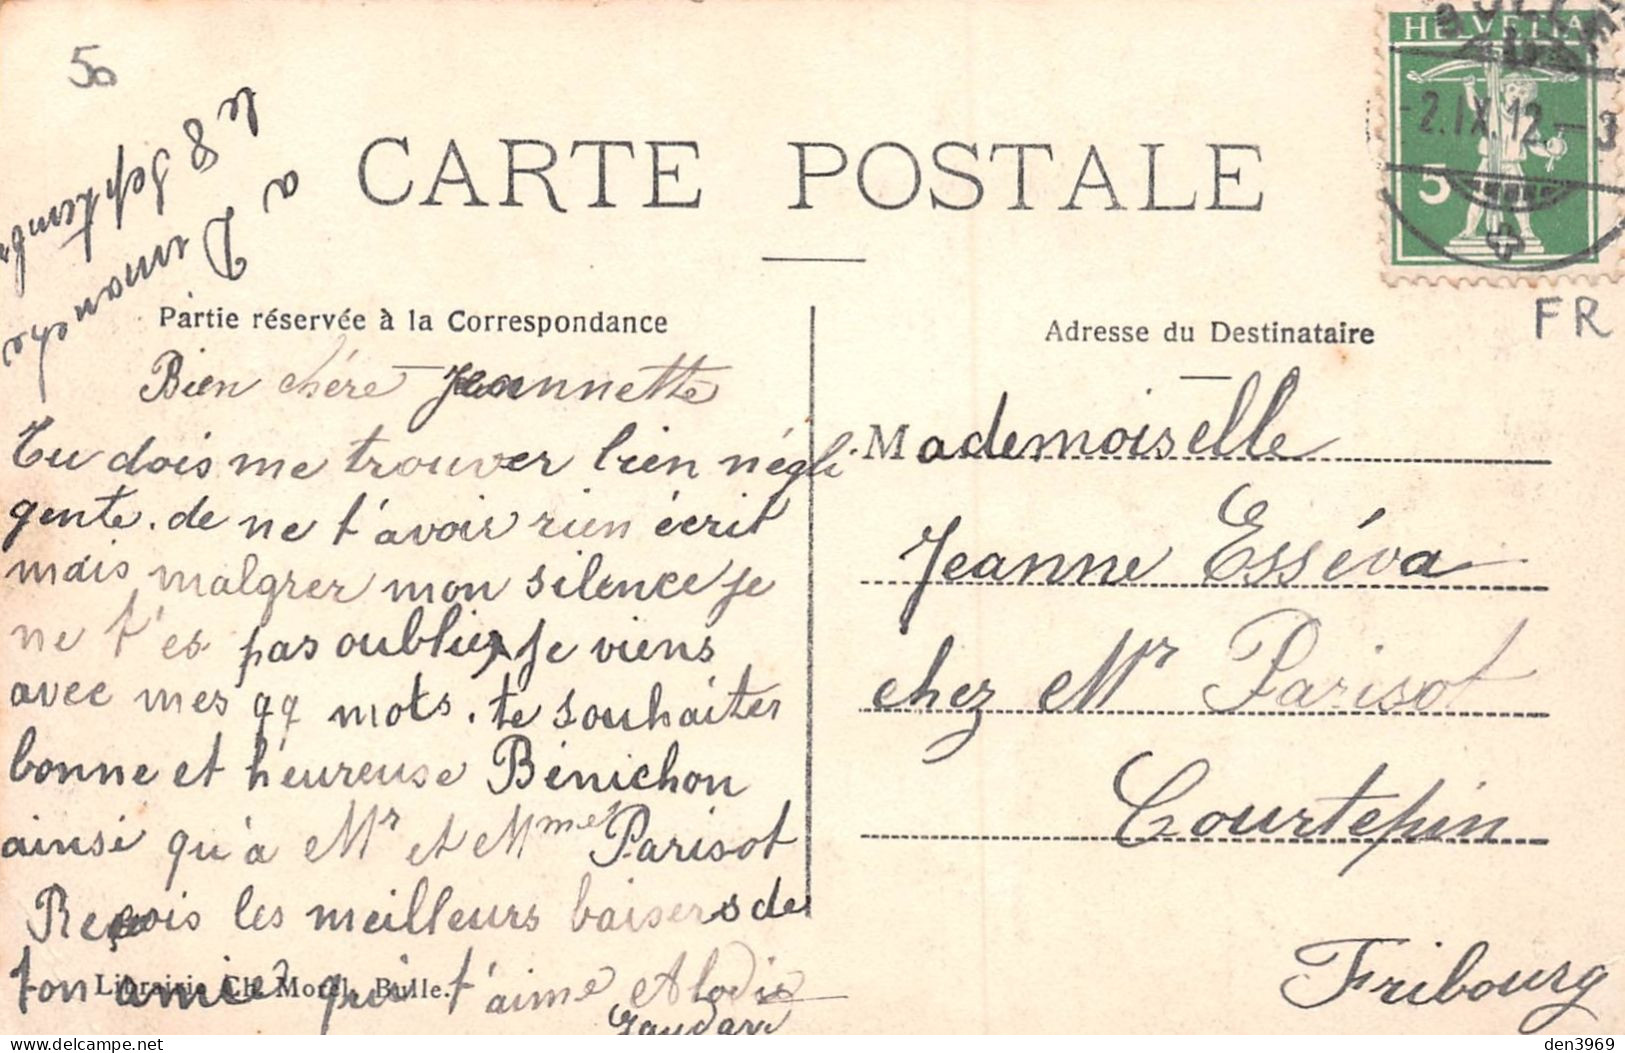 50
HELVETIA
-2.IX.12-3
5
FR
CARTE POSTALE
a Dimanche
le 8 Septembr
Partie réservée à la Correspondance
Bien chére Jeannette
Tu dois me trouver bien négli
gente. de ne t'avoir rien écrit
mais malgrer mon silence je
ne t'es pas oublier, je viens
avec mes qq mots. te souhaiter
bonne et heureuse Bénichon
ainsi qu'à Mr et Mme Parisot
Reçois les meilleurs baisers de
ton amie qui t'aime Alodie
Librairie Ch. Morel, Bulle.
Adresse du Destinataire
Mademoiselle
Jeanne Esséva
chez Mr Parisot
Courtepin
Fribourg
delcampe.net
den3969